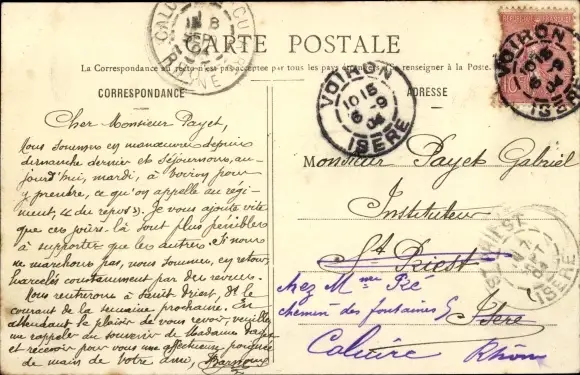 CARTE POSTALE
La Correspondance au recto n'est pas acceptée par tous les pays étrangers. Se renseigner à la Poste.
CORRESPONDANCE
ADRESSE
VOIRON
ISÈRE
10 15
6 9
04
VOIRON
ISÈRE
10
ST PRIEST
ISÈRE
RHÔNE
Cher Monsieur Payet,
Nous sommes en manœuvre depuis
dimanche dernier et séjournons, au-
jourd'hui, mardi, à Voiron pour
y prendre, ce qu'on appelle au régi-
ment, « du repos ». Je vous ajoute vite
que ces jours-là sont plus pénibles
à supporter que les autres. Si nous
ne marchons pas, nous sommes, en retour,
harcelés constamment par des revues.
Nous rentrerons à Saint Priest,
courant de la semaine prochaine. En
attendant le plaisir de vous revoir, veuillez
me rappeler au souvenir de Madame Payet
et recevoir pour vous une affectueuse poignée
de main de votre ami,
Monsieur Payet Gabriel
Instituteur
St Priest
chez Mme
chemin des fontaines
Isère
Caluire Rhône